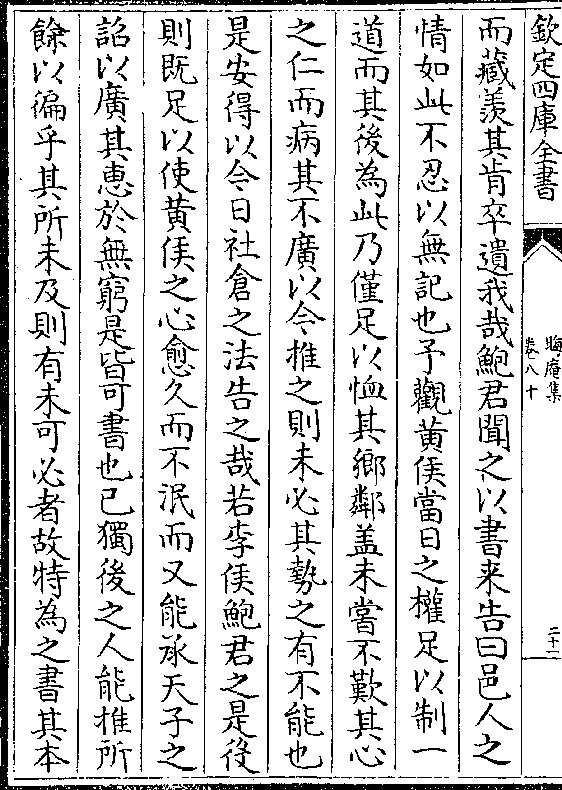 欽定四庫全書
晦庵集
卷八十
二十一
而藏羨其肯卒遺我哉鮑君聞之以書来告曰邑人之
情如此不忍以無記也予觀黄侯當日之權足以制一
道而其後為此乃僅足以恤其鄉鄰盖未嘗不歎其心
之仁而病其不廣以今推之則未必其勢之有不能也
是安得以今日社倉之法告之哉若李侯鮑君之是役
則既足以使黄侯之心愈久而不泯而又能承天子之
詔以廣其恵於無窮是皆可書也已獨後之人能推所
餘以徧乎其所未及則有未可必者故特為之書其本